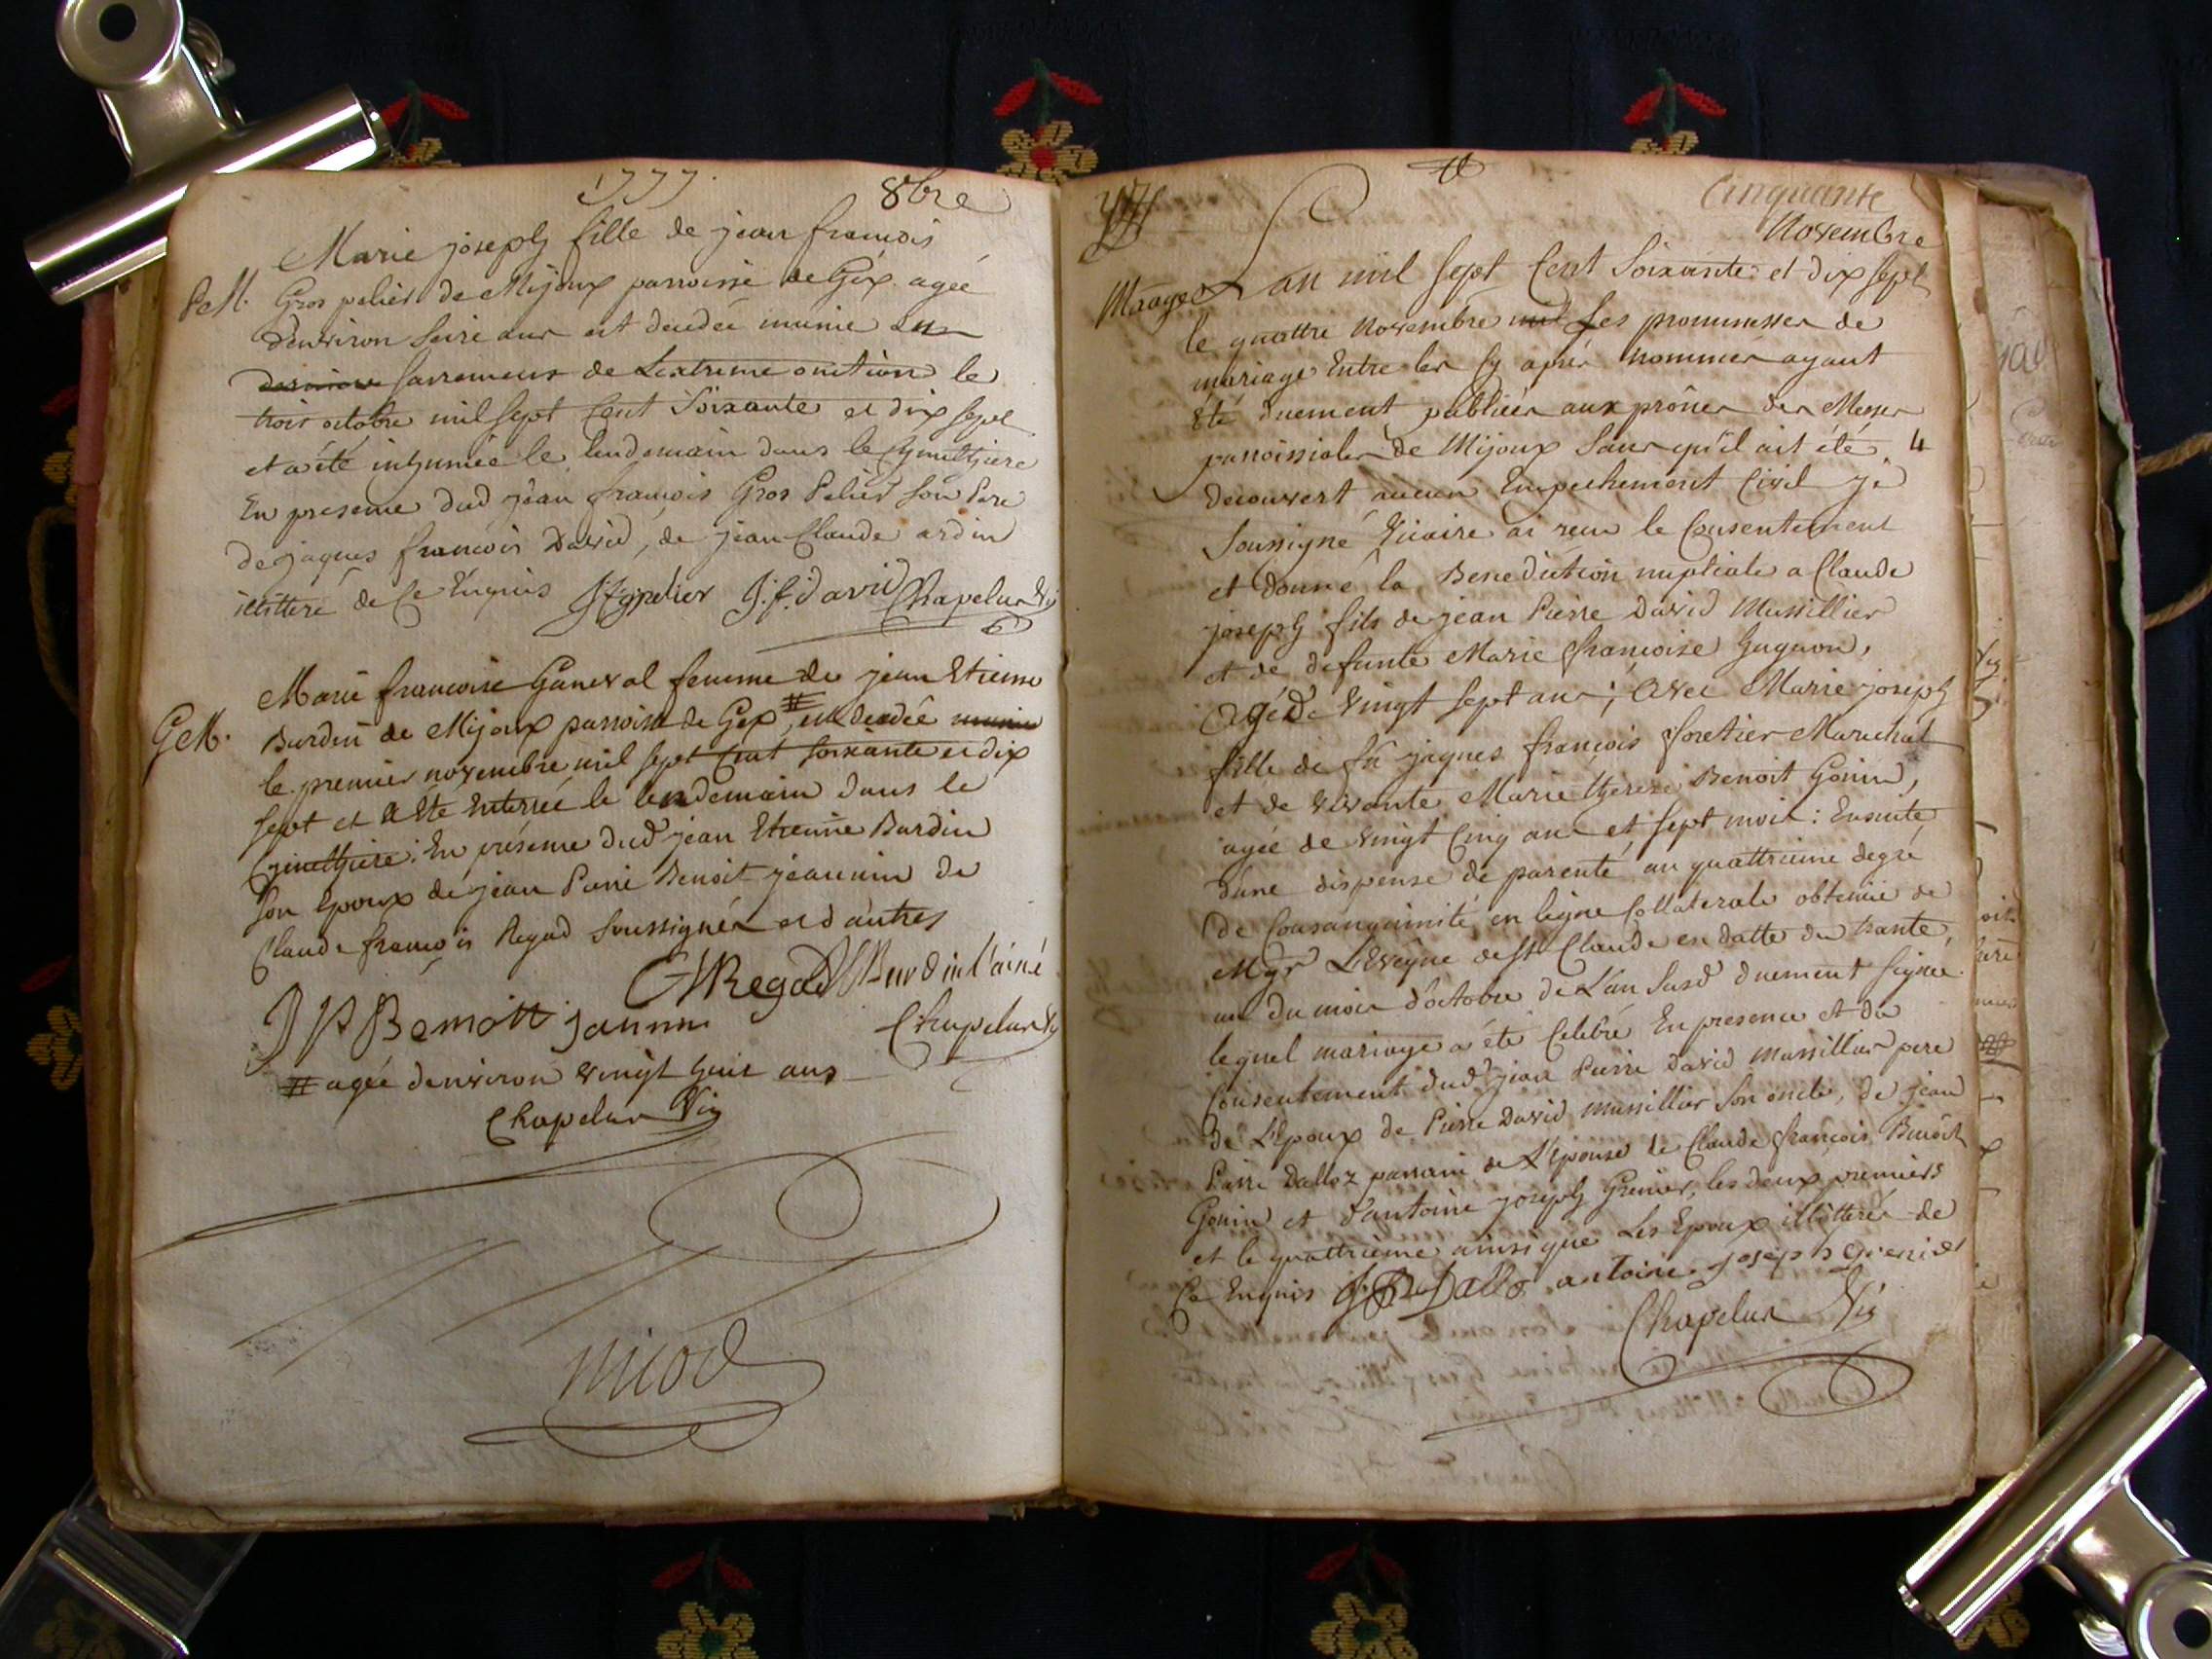 1777. 8bre
Marie joseph fille de jean francois
Gros pelier de Mijoux parroisse de Gex agée
d'environ seize ans est decedée munie
sacremens de Lextreme onction le
trois octobre mil sept Cent Soixante et dix sept
et a été inhumée le lendemain dans le Cymethiere
En presence dud jean francois Gros Pelier son Pere
de jaques francois David, de jean Claude ardin
illitteré de Ce Enquis J f gpelier J. f. David Chapelur Vic
Marie francoise Ganeval femme de jean Etienne
G M. Burdin de Mijoux parroisse de Gex # est decedée munie
le premier novembre mil sept Cent soixante et dix
sept et a été Enterrée le lendemain dans le
Cymethiere: En présence dud jean Etienne Burdin
son Epoux de jean Pierre Benoit jeannin de
Claude francois Regad soussignés et d'autres
Regad Burdin l'ainé
J P Benoitt jannin Chapelur Vic
# agée denviron vingt huit ans
Chapelur Vic
nicod
Cinquante
Novembre
Mariage L an mil sept Cent Soixante et dix sept
le quattre Novembre mil Les promesses de
mariage Entre les Cy après nommés ayant
Eté duement publiées aux prônes des Messes
parroissiales de Mijoux sans qu'il ait été 4
decouvert aucun Empechement Civil je
soussigné Vicaire ai recu le Consentement
et donné la Benediction nuptiale a Claude
joseph fils de jean Pierre David Mussillier
et de defunte Marie francoise Gugnon,
agé de vingt sept ans; avec Marie joseph
fille de fû jaques francois foretier Marechal
et de vivante Marie therese Benoit Gonin,
agée de vingt Cinq ans et sept mois: Ensuite
dune dispense de parenté au quattrieme degré
de Consanguinité en ligne Collaterale obtenüe de
Mgr L'Evêque de St Claude en datte du trante
un du mois d'octobre de L'an susd duement signée
lequel mariage a été Celebré En presence et du
Consentement dud jean Pierre David mussillier pere
de L'Epoux de Pierre David mussillier son oncle, de jean
Pierre Dalloz parrain de L'épouse de Claude francois Benoit
Gonin et d'antoine joseph Grenier, les deux premiers
et le quattrieme ainsi que Les Epoux illitterés de
Ce Enquis Dalloz antoine joseph Grenier
Chapelur Vic